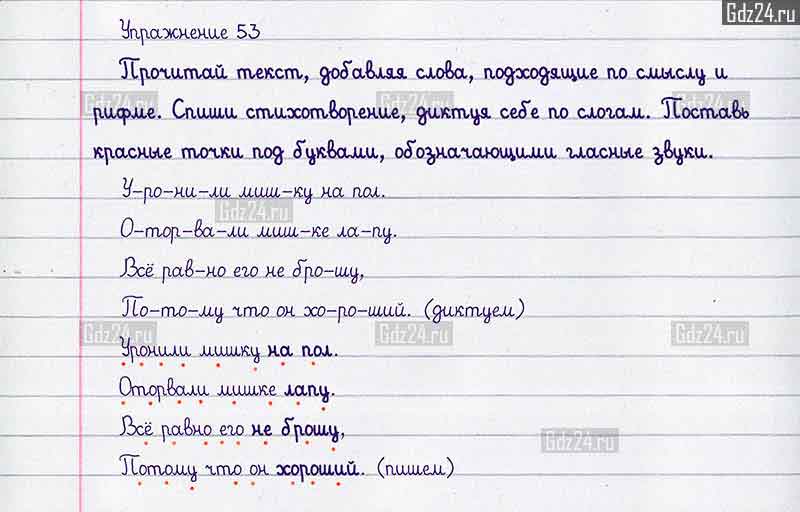 Gdz24.ru
Упражнение 53
Прочитай текст, добавляя слова, подходящие по смыслу и
Gdz24.ru Gdz24.ru Gdz24.ru
рифме. Спиши стихотворение, диктуя себе по слогам. Поставь
красные точки под буквами, обозначающими гласные звуки.
У-ро-ни-ли миш-ку на пол.
Gdz24.ru
О-тор-ва-ли миш-ке ла-пу.
Всё рав-но его не бро-шу,
По-то-му что он хо-ро-ший. (диктуем)
Gdz24.ru Gdz24.ru Gdz24.ru
Уронили мишку на пол.
Оторвали мишке лапу.
Всё равно его не брошу,
Gdz24.ru
Потому что он хороший. (пишем)